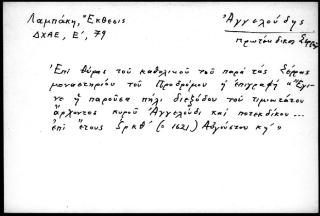 Λαμπάκη, "Έκθεσις
ΔΧΑΕ, Ε', 79
Ἀγγελούδης
πρωτέκδικος Σερρῶν
Ἐπί θύρας τοῦ καθολικοῦ τοῦ παρά τάς Σέρρας
μοναστηρίου τοῦ Προδρόμου ἡ ἐπιγραφή "Ἐγι-
νε ἡ παροῦσα πήλι διεξόδου τοῦ τιμιωτάτου
ἄρχοντος κυροῦ Ἀγγελούδι καί ποτεκδίκου...
ἐπί ἔτους ζρκθ' (= 1621) Αὐγούστου κη'"